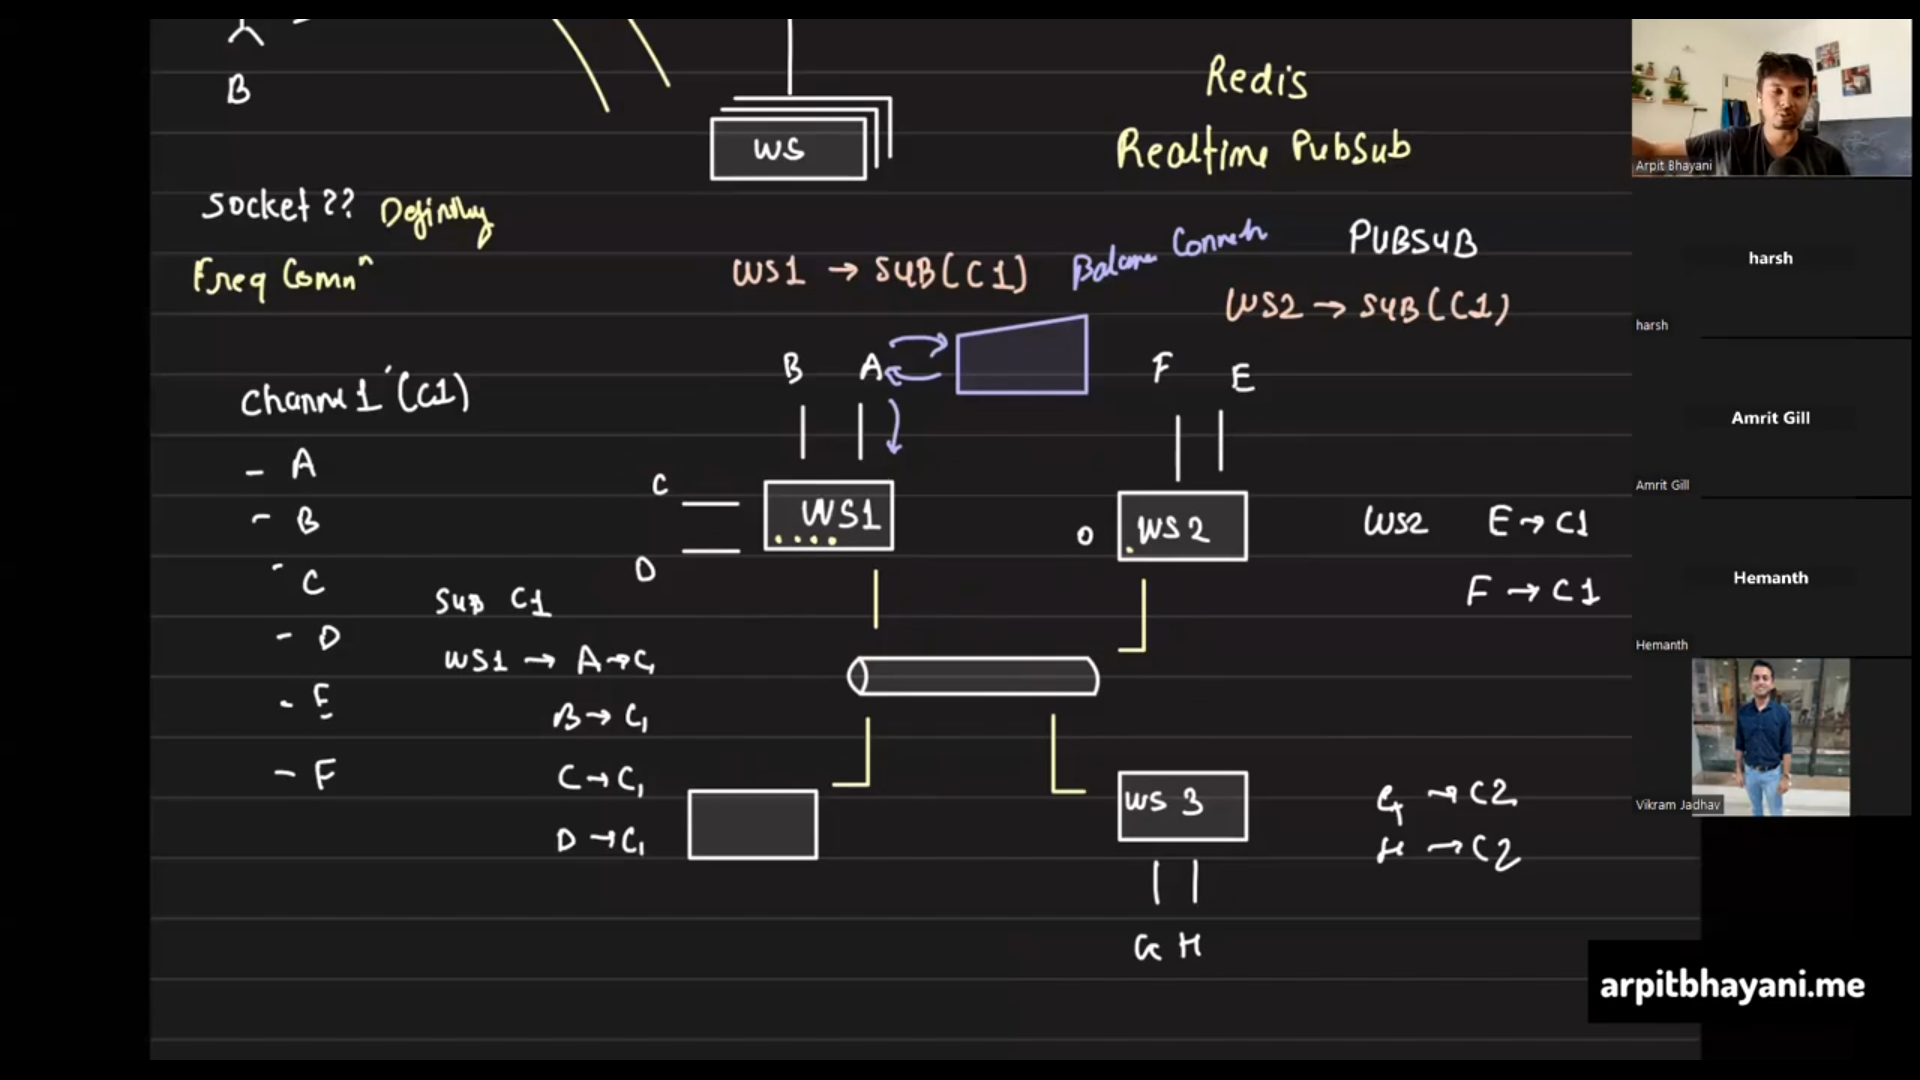 B
WS
Redis
Realtime PubSub
Socket ??
Freq Commⁿ
WS1 → SUB(C1)
PUBSUB
WS2 → SUB(C1)
B A
F E
Channel 1 (C1)
- A
- B
- C
- D
- E
- F
C
D
WS1
0 WS2
WS2 E → C1
F → C1
SUB C1
WS1 → A → C1
B → C1
C → C1
D → C1
WS 3
G → C2
H → C2
G H
Arpit Bhayani
harsh
harsh
Amrit Gill
Amrit Gill
Hemanth
Hemanth
Vikram Jadhav
arpitbhayani.me